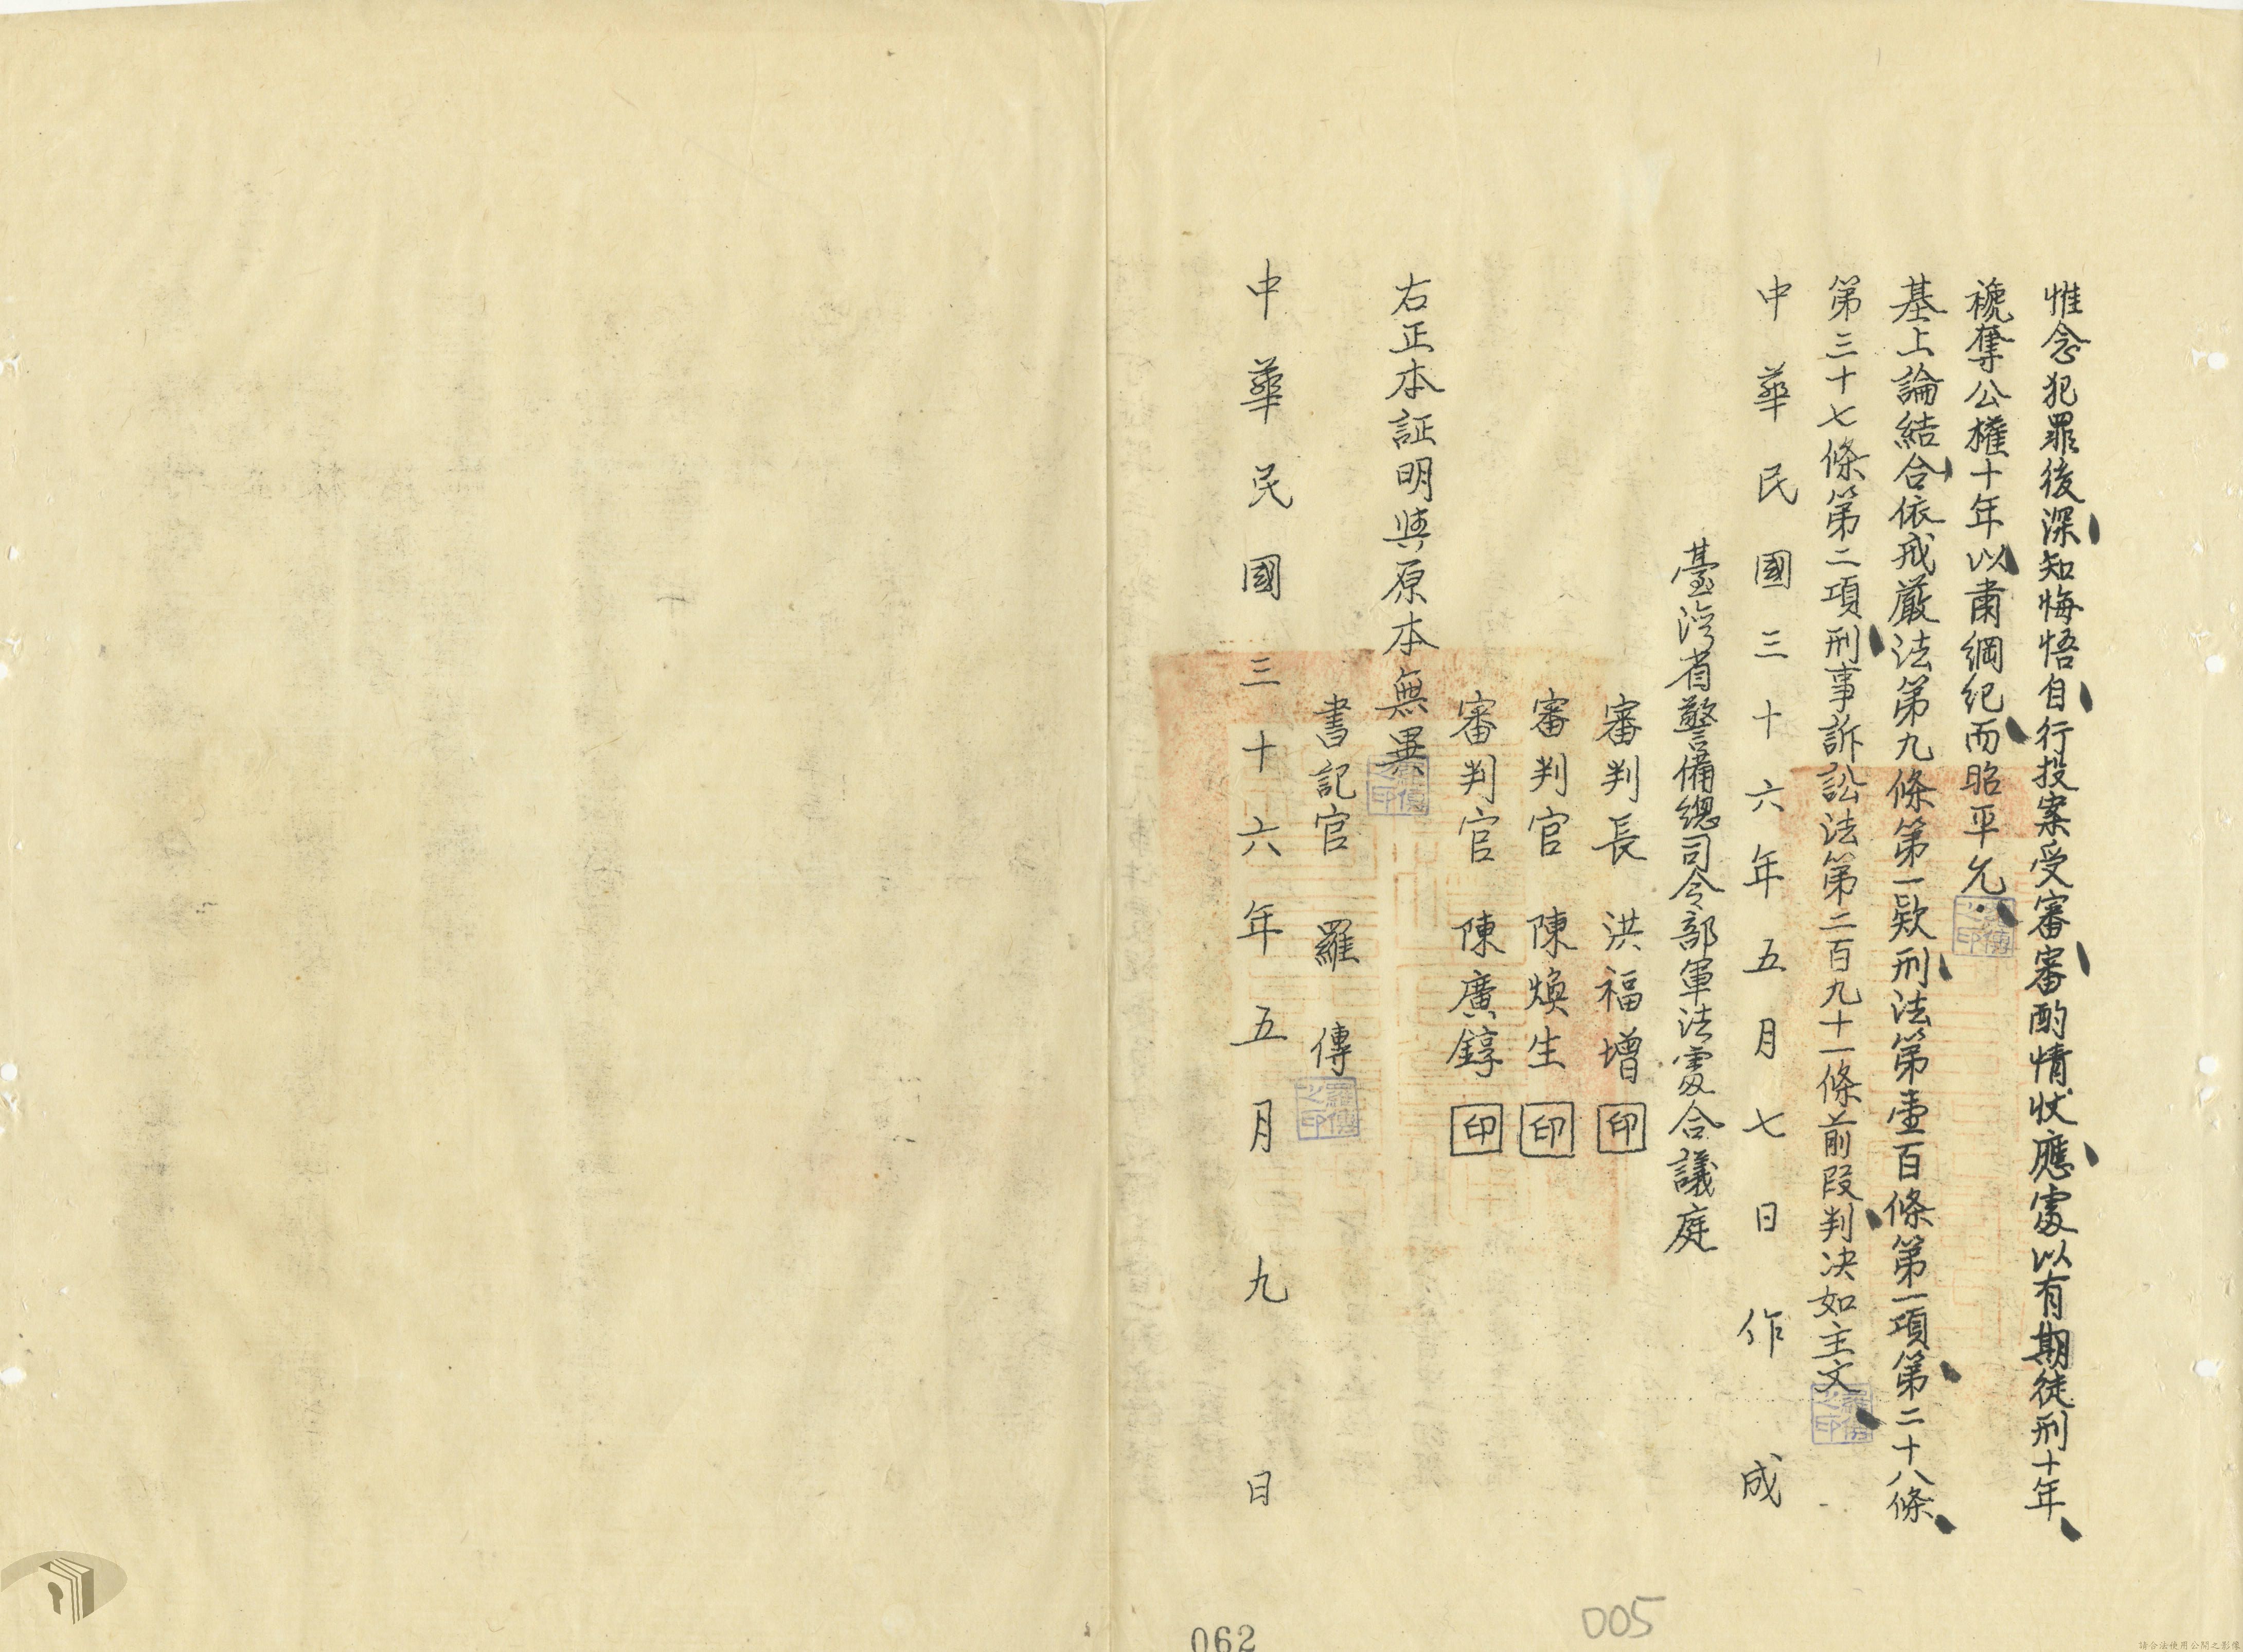 惟念犯罪後深知悔悟自行投案受審審酌情狀應處以有期徒刑十年
褫奪公權十年以肅綱紀而昭平允
基上論結合依戒嚴法第九條第一欵刑法第壹百條第一項第二十八條
第三十七條第二項刑事訴訟法第二百九十一條前段判决如主文
中華民國三十六年五月七日作成
臺灣省警備總司令部軍法處合議庭
審判長 洪福增 印
審判官 陳煥生 印
審判官 陳廣錞 印
右正本証明與原本無異
書記官 羅傳
羅傳之印
中華民國三十六年五月九日
062
005
請合法使用公開之影像